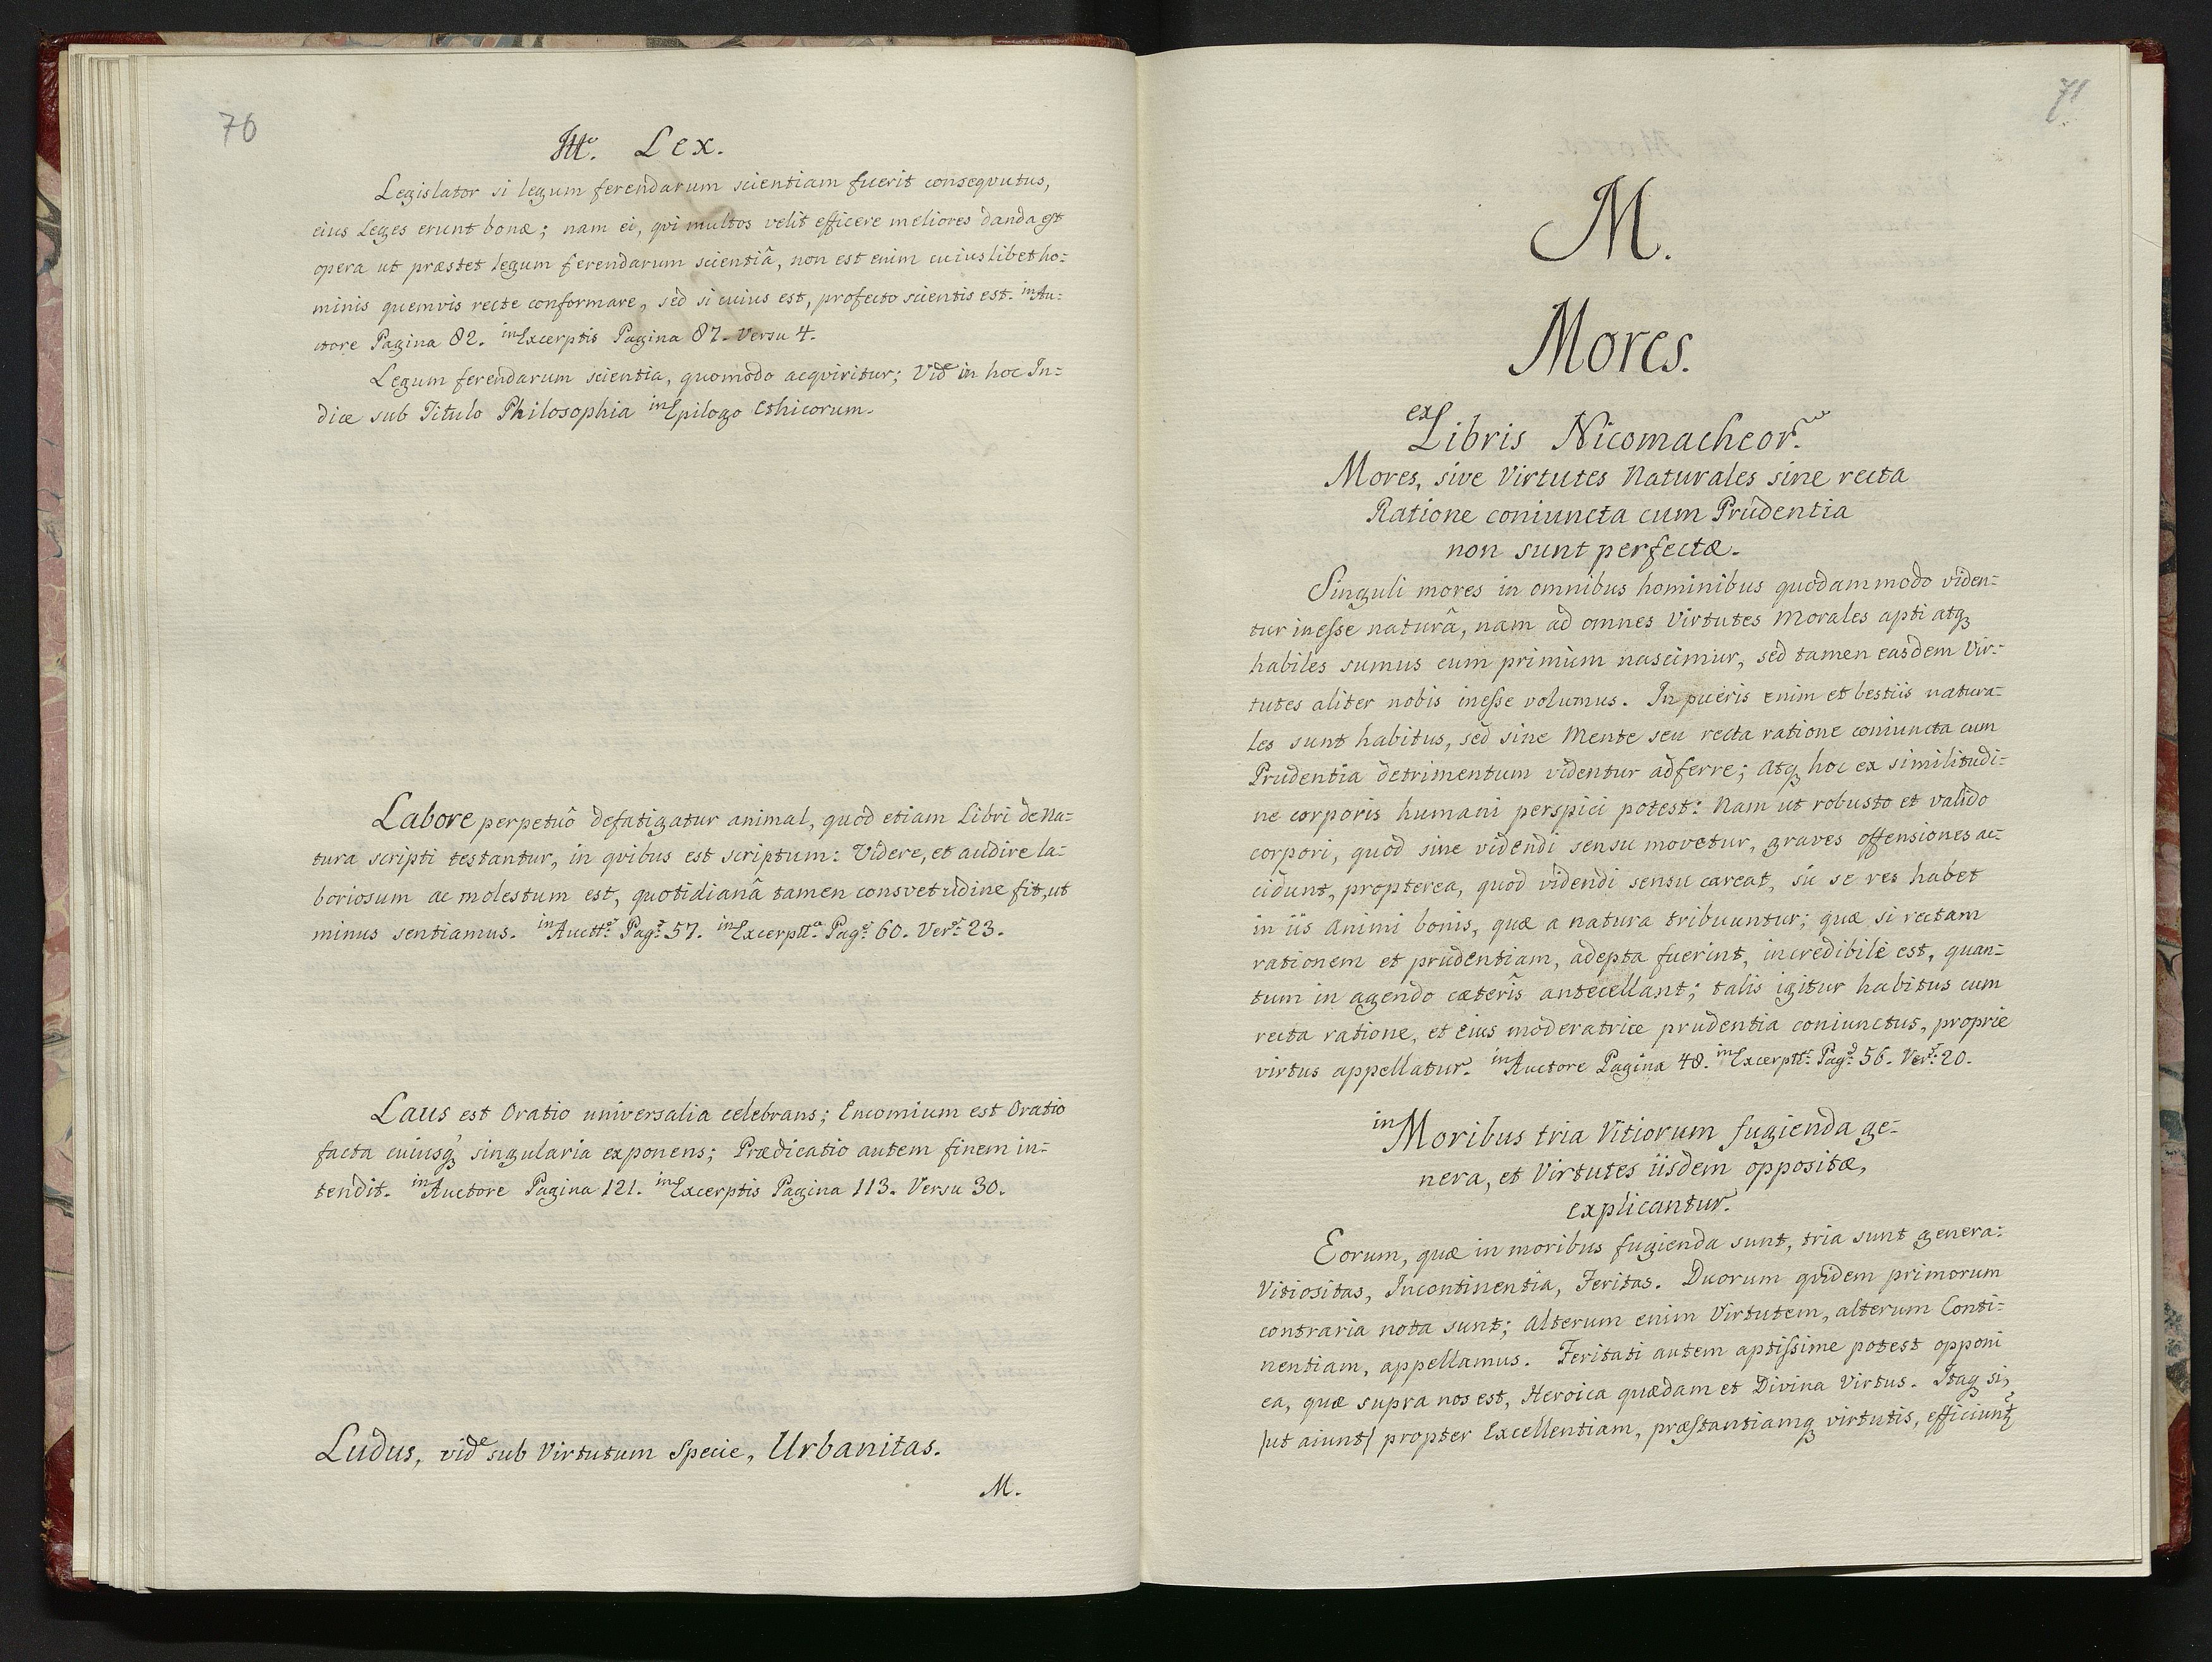 70
Ttt. Lex.
Legislator si legum ferendarum scientiam fuerit conseqvutus,
eius Leges erunt bonæ; nam ei, qvi multos velit efficere meliores danda est
opera ut præstet legum ferendarum scientiâ, non est enim cuiuslibet ho=
minis quemvis recte conformare, sed si cuius est, profecto scientis est. in Au=
ctore Pagina 82. in Excerptis Pagina 87. Versu 4.
Legum ferendarum scientia, quomodo acqviritur; Vide in hoc In=
dice sub Titulo Philosophia in Epilogo Ethicorum.
Labore perpetuô defatigatur animal, quod etiam Libri de Na=
tura scripti testantur, in qvibus est scriptum: Videre, et audire la=
boriosum ac molestum est, quotidianâ tamen consvetudine fit, ut
minus sentiamus. in Auctt: Pag: 57. in Excerptt: Pag: 60. Ver: 23.
Laus est Oratio universalia celebrans; Encomium est Oratio
facta cuiusq; singularia exponens; Prædicatio autem finem in=
tendit. in Auctore Pagina 121. in Excerptis Pagina 113. Versu 30.
Ludus, vide sub Virtutum Specie, Urbanitas.
M.
71
M.
Mores.
ex Libris Nicomacheor.
Mores, sive Virtutes Naturales sine recta
Ratione coniuncta cum Prudentia
non sunt perfectæ.
Singuli mores in omnibus hominibus quodammodo viden=
tur inesse naturâ, nam ad omnes Virtutes Morales apti atq;
habiles sumus cum primum nascimur, sed tamen easdem Vir=
tutes aliter nobis inesse volumus. In pueris enim et bestiis natura=
les sunt habitus, sed sine Mente seu recta ratione coniuncta cum
Prudentia detrimentum videntur adferre; Atq; hoc ex similitudi=
ne corporis humani perspici potest: Nam ut robusto et valido
corpori, quod sine videndi sensu movetur, graves offensiones ac=
cidunt, propterea, quod videndi sensu careat, sic se res habet
in iis Animi bonis, quæ a natura tribuuntur; quæ si rectam
rationem et prudentiam, adepta fuerint, incredibile est, quan=
tum in agendo cæteris antecellant; talis igitur habitus cum
recta ratione, et eius moderatrice prudentia coniunctus, proprie
virtus appellatur. in Auctore Pagina 48. in Excerptt: Pag: 56. Ver: 20.
in Moribus tria Vitiorum fugienda ge=
nera, et Virtutes iisdem oppositæ,
explicantur.
Eorum, quæ in moribus fugienda sunt, tria sunt genera:
Vitiositas, Incontinentia, Feritas. Duorum qvidem primorum
contraria nota sunt; Alterum enim Virtutem, alterum Conti=
nentiam, appellamus. Feritati autem aptissime potest opponi
ea, quæ supra nos est, Heroica quædam et Divina Virtus. Itaq; si,
/ut aiunt/ propter Excellentiam, præstantiamq; virtutis, efficiunt